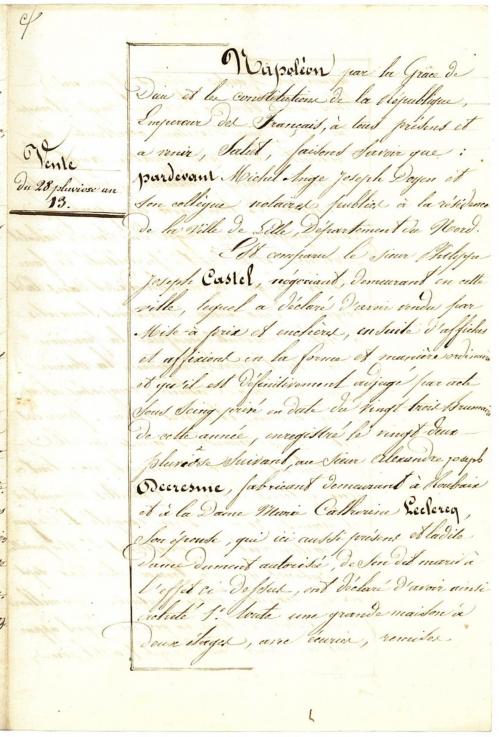 Vente
du 28 pluviose an
13.
Napoléon par la Grâce de
Dieu et les constitutions de la République,
Empereur des Français, à tous présens et
a venir, Salut, faisons Savoir que :
pardevant Michel Ange Joseph Doyen et
son collègue notaires publics à la résidence
de la ville de Lille, Département du Nord.
Est comparu le sieur Philippe
Joseph Castel, négociant, demeurant en cette
ville, lequel a déclaré d'avoir vendu par
Mise à prix et enchères, ensuite d'affiches
et affixions en la forme et manière ordinaire
et qu'il est définitivement adjugé par acte
Sous Seing privé en date du vingt trois Brumaire
de cette année, enregistré le vingt deux
pluviôse Suivant, au sieur Alexandre Joseph
Decresme, fabricant demeurant à Roubaix
et à la Dame Marie Catherine Leclercq,
Son épouse, qui ici aussi présens et ladite
Dame dument autorisée, de Son dit mari à
l'effet ci dessus, ont déclaré d'avoir ainsi
acheté 1º toute une grande maison à
deux étages, avec écurie, remises